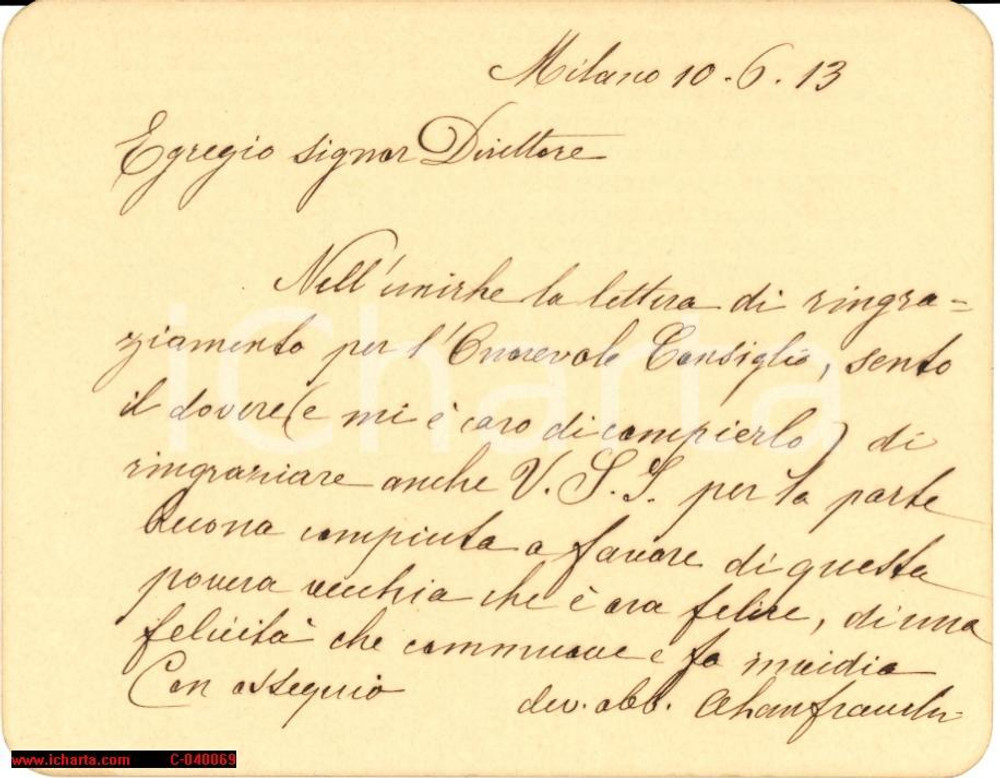 Milano 10.6.13
Egregio signor Direttore
Nell'unirhe la lettera di ringra=
ziamento per l'Onorevole Consiglio, sento
il dovere (e mi è caro di compierlo) di
ringraziare anche V.S.I. per la parte
buona compiuta a favore di questa
povera vecchia che è ora felice, di una
felicità che commuove e fa invidia
Con ossequio
dev. obb.
iCharta
www.icharta.com C-040069